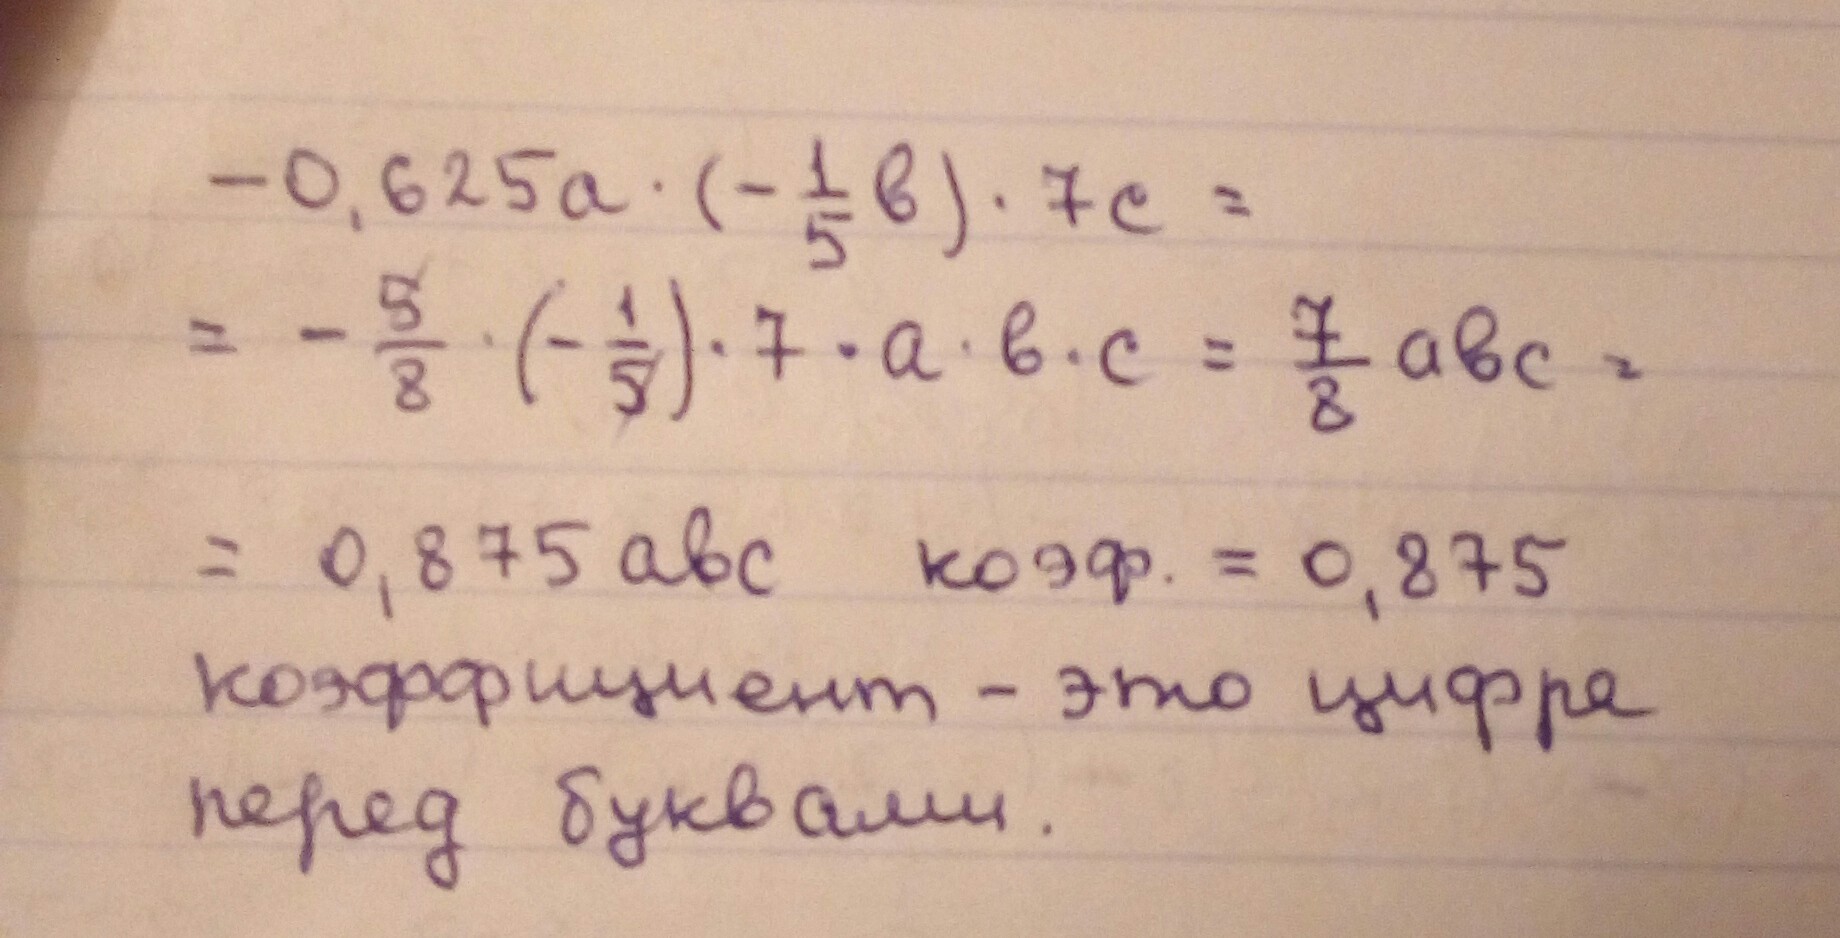 -0,625a · (-1/5 в) · 7c =
= - 5/8 · (-1/5) · 7 · a · в · c = 7/8 aвc =
= 0,875 aвc коэф. = 0,875
коэффициент - это цифра
перед буквами.